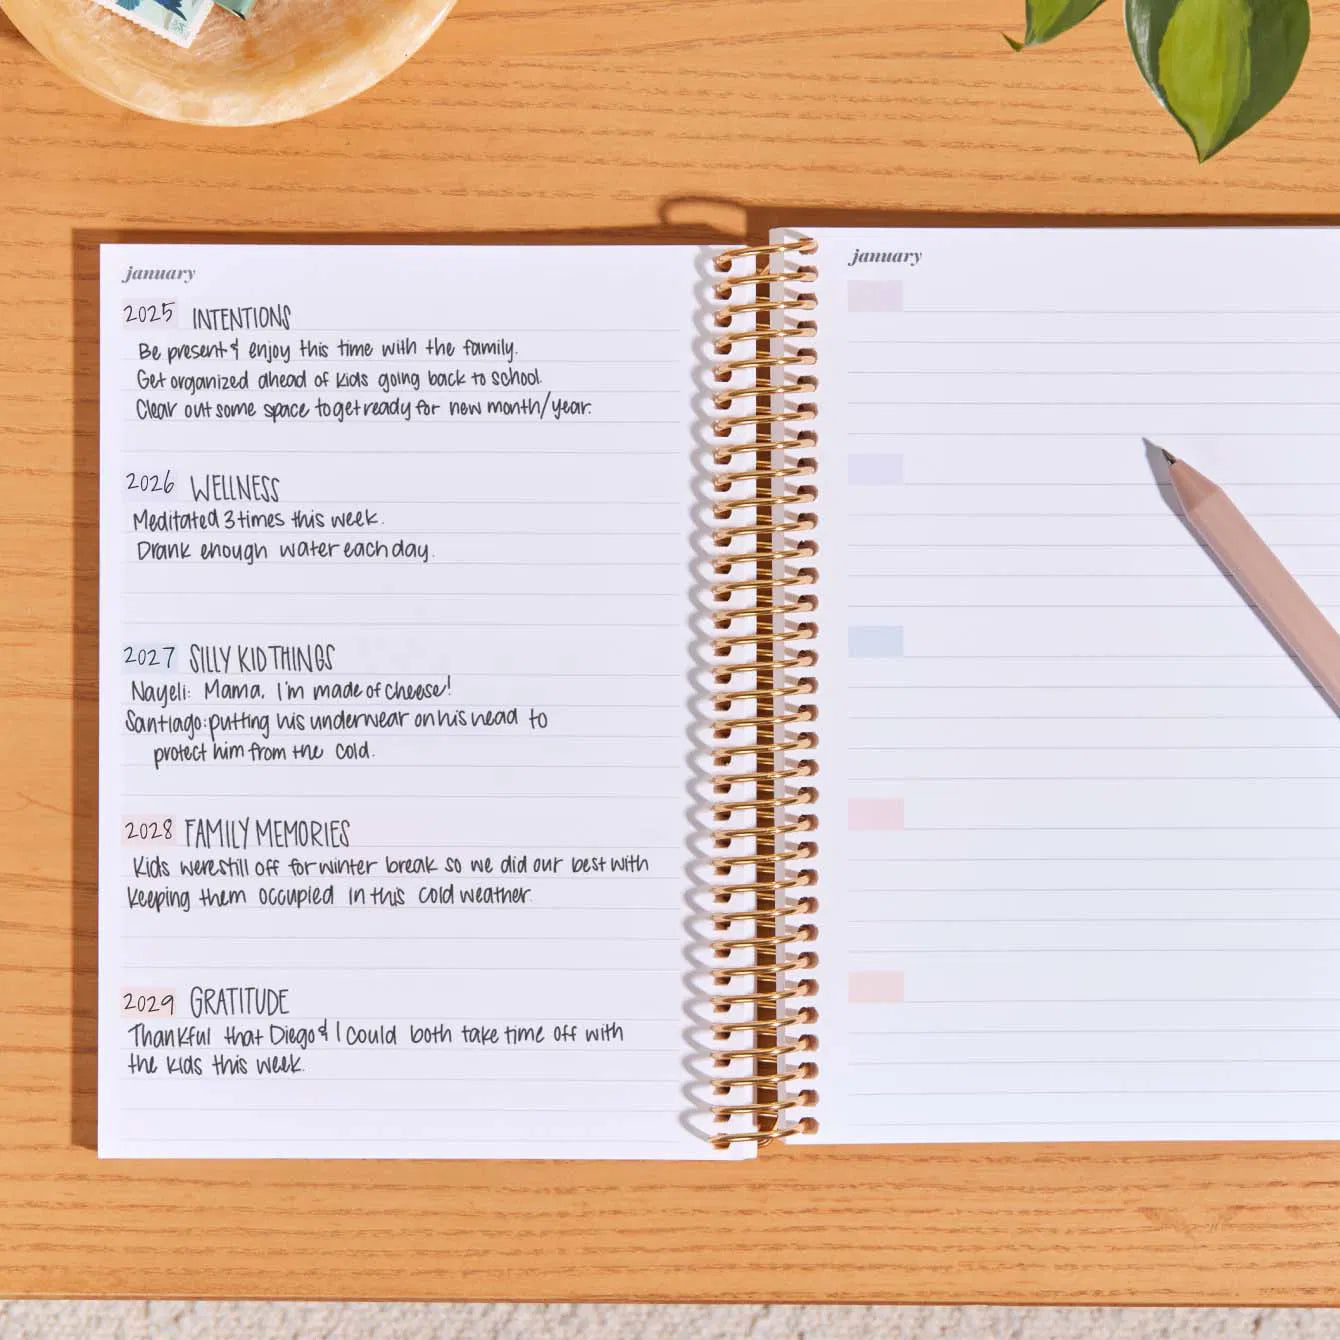 january
2025 INTENTIONS
Be present & enjoy this time with the family.
Get organized ahead of kids going back to school.
Clear out some space to get ready for new month/year.
2026 WELLNESS
Meditated 3 times this week.
Drank enough water each day.
2027 SILLY KID THINGS
Nayeli: Mama, I'm made of cheese!
Santiago: putting his underwear on his head to
protect him from the cold.
2028 FAMILY MEMORIES
Kids were still off for winter break so we did our best with
keeping them occupied in this cold weather.
2029 GRATITUDE
Thankful that Diego & I could both take time off with
the kids this week.
january